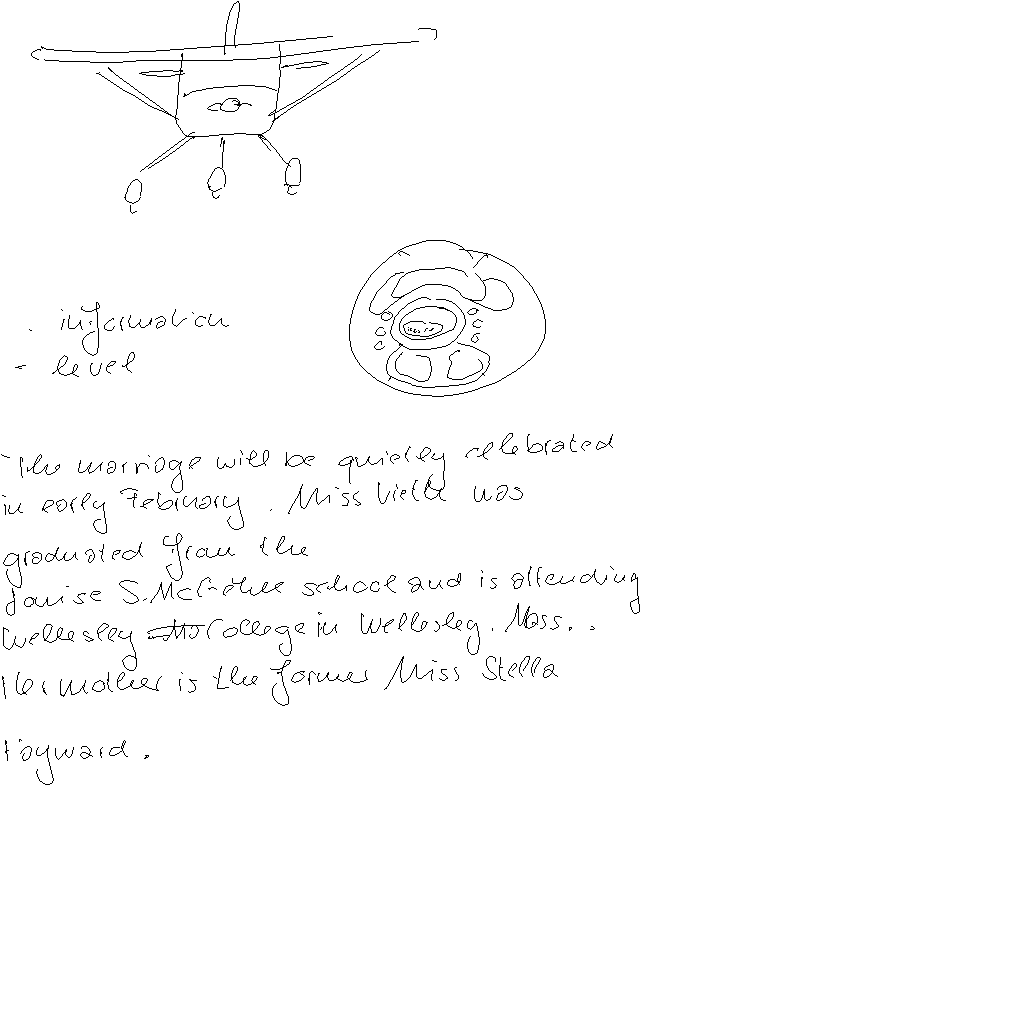 - information
- level
The marriage will be quietly celebrated
in early February. Miss Vieth was
graduated from the
Louise S. McGehee school and is attending
Wellesley College in Wellesley. Mass..
Her mother is the former Miss Stella
Hayward.